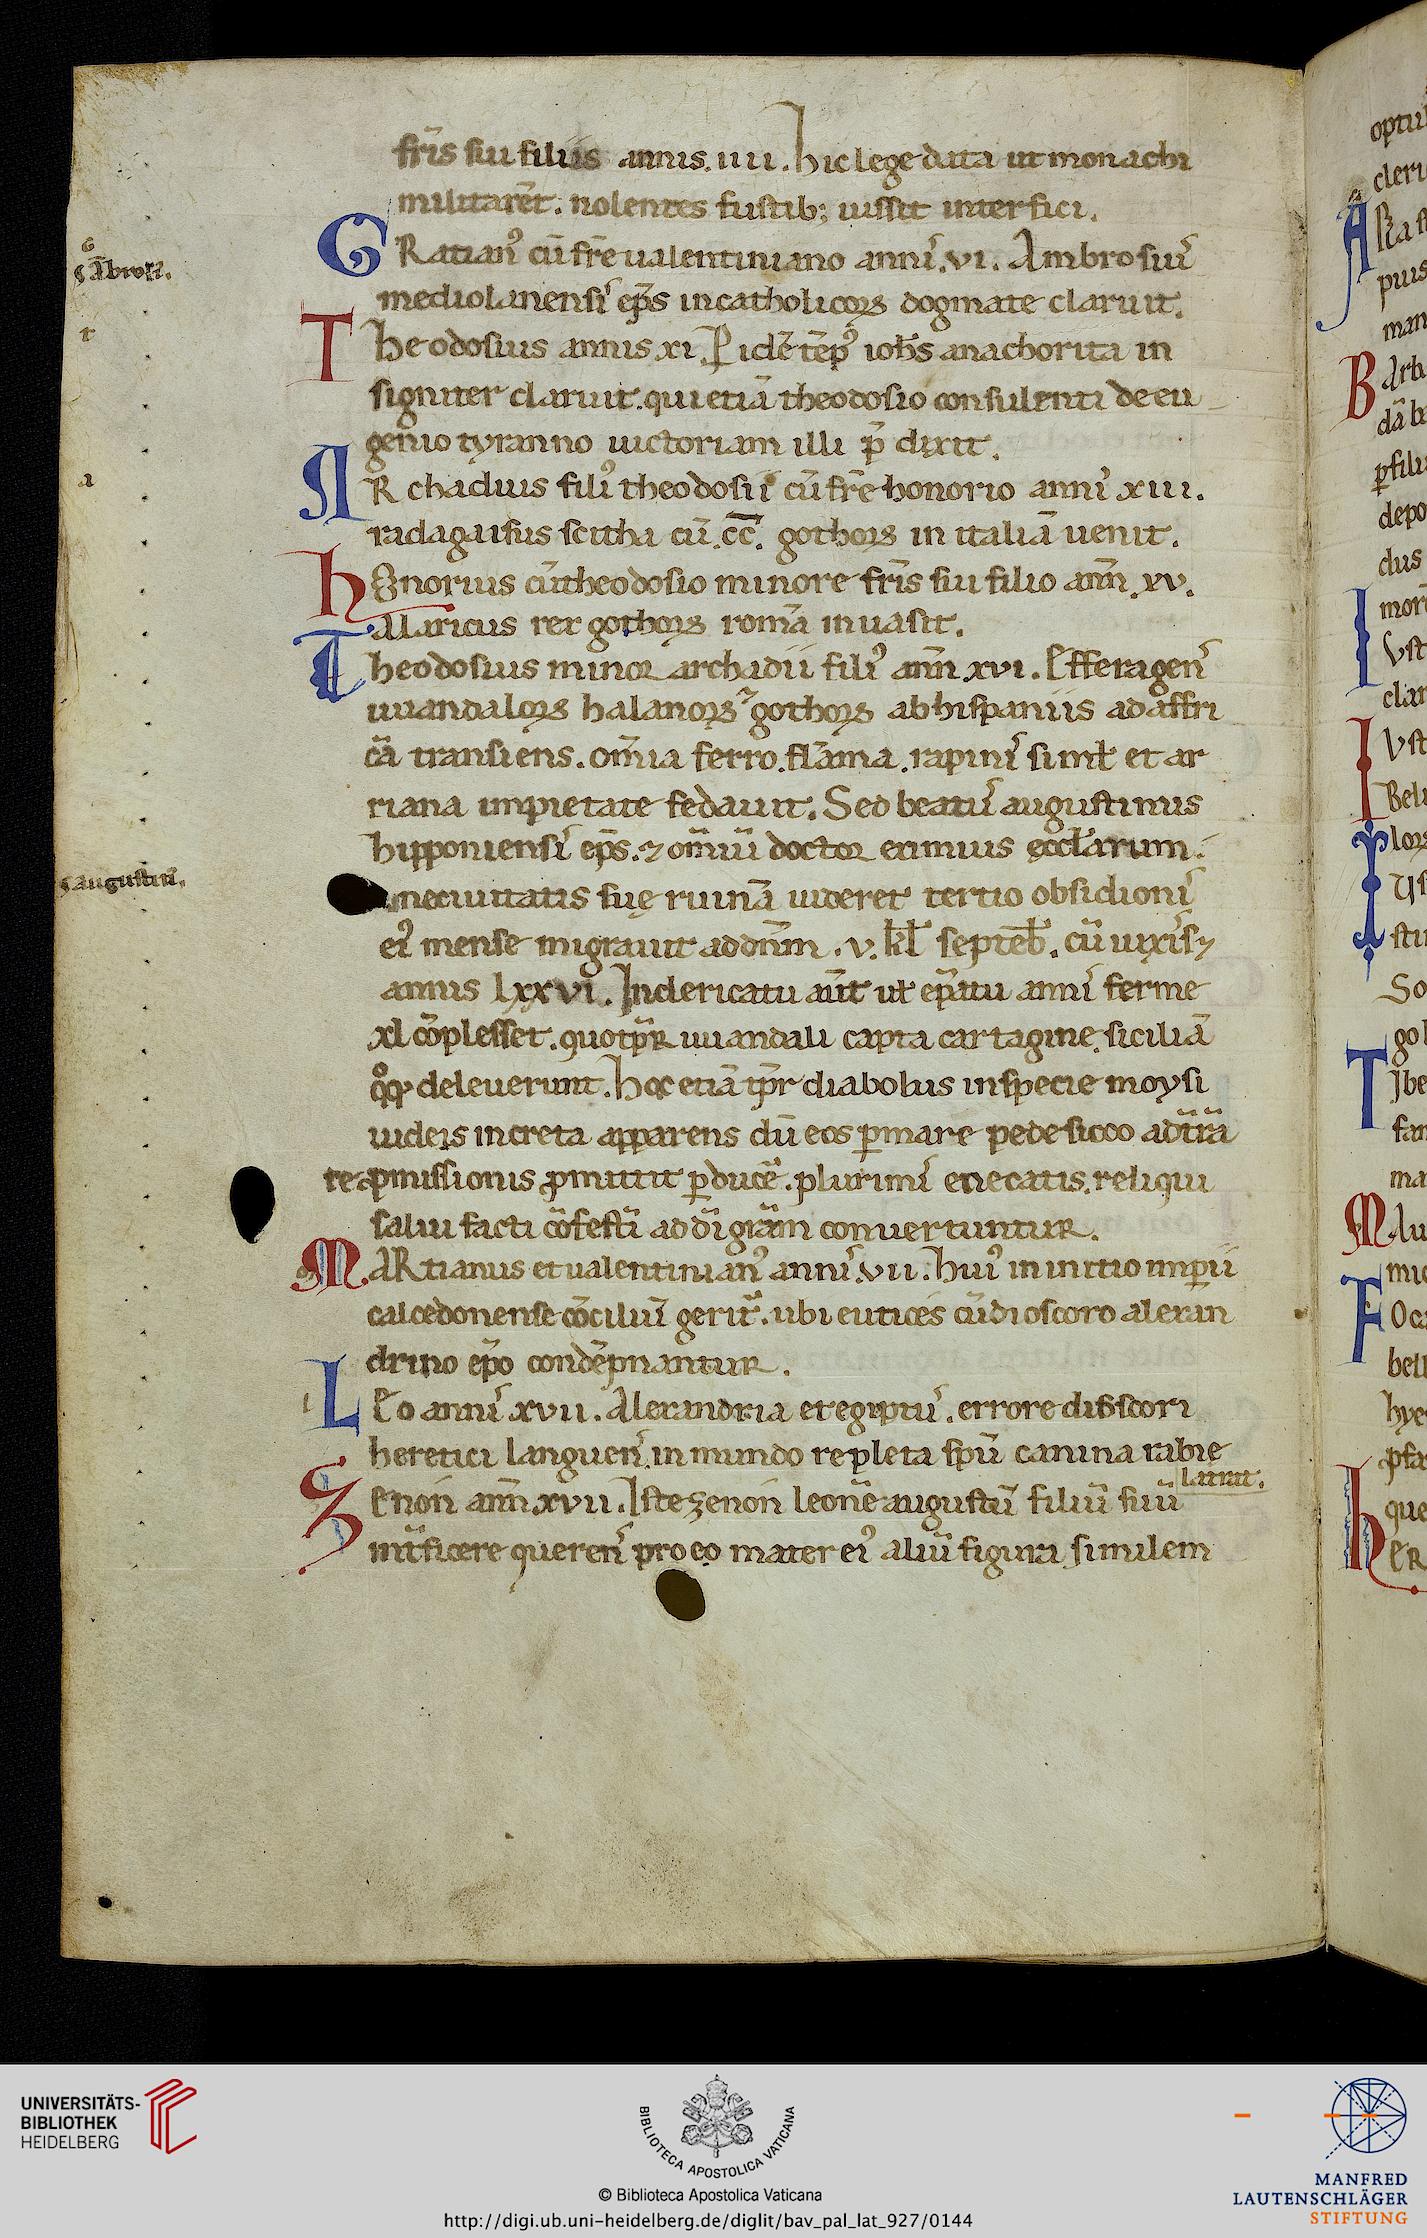 fr̄is sui filiis annis .iiii. hic lege data ut monachi
militarēt. nolentes fustib; iussit interfici.
GRatianꝰ cū fr̄e ualentiniano annis .vi. Ambrosius
s ābrosii.
mediolanensis ep̄s in catholicoꝝ dogmate claruit.
t
Theodosius annis xi. P idē tēpꝰ ioh̄s anachorita in
signiter claruit. qui etiā theodosio consulenti de eu
genio tyranno uictoriam illi p̄ dixit.
a
ARchadius filiꝰ theodosii cū fr̄e honorio annis xiii.
radagaisus scitha cū .c̄c̄. gothoꝝ in italiā uenit.
honorius cū theodosio minore fr̄is sui filio ann̄ .xv.
alaricus rex gothoꝝ romā inuasit.
Theodosius minor archadii filiꝰ ann̄ xvi. Effera gens
uuandaloꝝ halanoꝝ ⁊ gothoꝝ ab hispaniis ad affri
cā transiens. om̄ia ferro. flāma. rapinis simł et ar
riana impietate fedauit. Sed beatus augustinus
hipponiensis ep̄s. ⁊ om̄iū doctor eximius ęccł̄arum.
s augustini.
ne ciuitatis suę ruinā uideret tertio obsidionis
eiꝰ mense migrauit ad dn̄m .v. kł septēb. cū uixis⁊
annis lxxvi. In clericatu aūt uł ep̄atu annis ferme
xl cōplesset. quo tp̄r uuandali capta cartagine, siciliā
qͦqȝ deleuerunt. hoc etiā tp̄r diabolus in specie moysi
iudeis in creta apparens dū eos ꝑ mare pede sicco ad tr̄ā
repmissionis ꝓmittit ꝑducē. plurimis enecatis, reliqui
salui facti cōfestī ad dī grām conuertuntur.
MARtianus et ualentinianꝰ annis .vii. huiꝰ in initio imperii
calcedonense cōciliū gerit᷑. ubi eutices cū dioscoro alexan
drino ep̄o condēpnantur.
l
LEo annis xvii. Alexandria et egiptus. errore dioscori
heretici languens, in mundo repleta sp̄ū canina rabie
latrat.
Zenon ann̄ xvii. Iste zenon leonē augustū filiū suū
int̄ficere querens pro eo mater eiꝰ aliū figura similem
optu
cleri
man
Barb
dā b
ꝑ fili
depo
dus
clar
Iust
Beli
So
go
Tibe
fam
Mau
Foca
bell
que
hER
UNIVERSITÄTS-
BIBLIOTHEK
HEIDELBERG
BIBLIOTECA APOSTOLICA VATICANA
© Biblioteca Apostolica Vaticana
http://digi.ub.uni-heidelberg.de/diglit/bav_pal_lat_927/0144
MANFRED
LAUTENSCHLÄGER
STIFTUNG